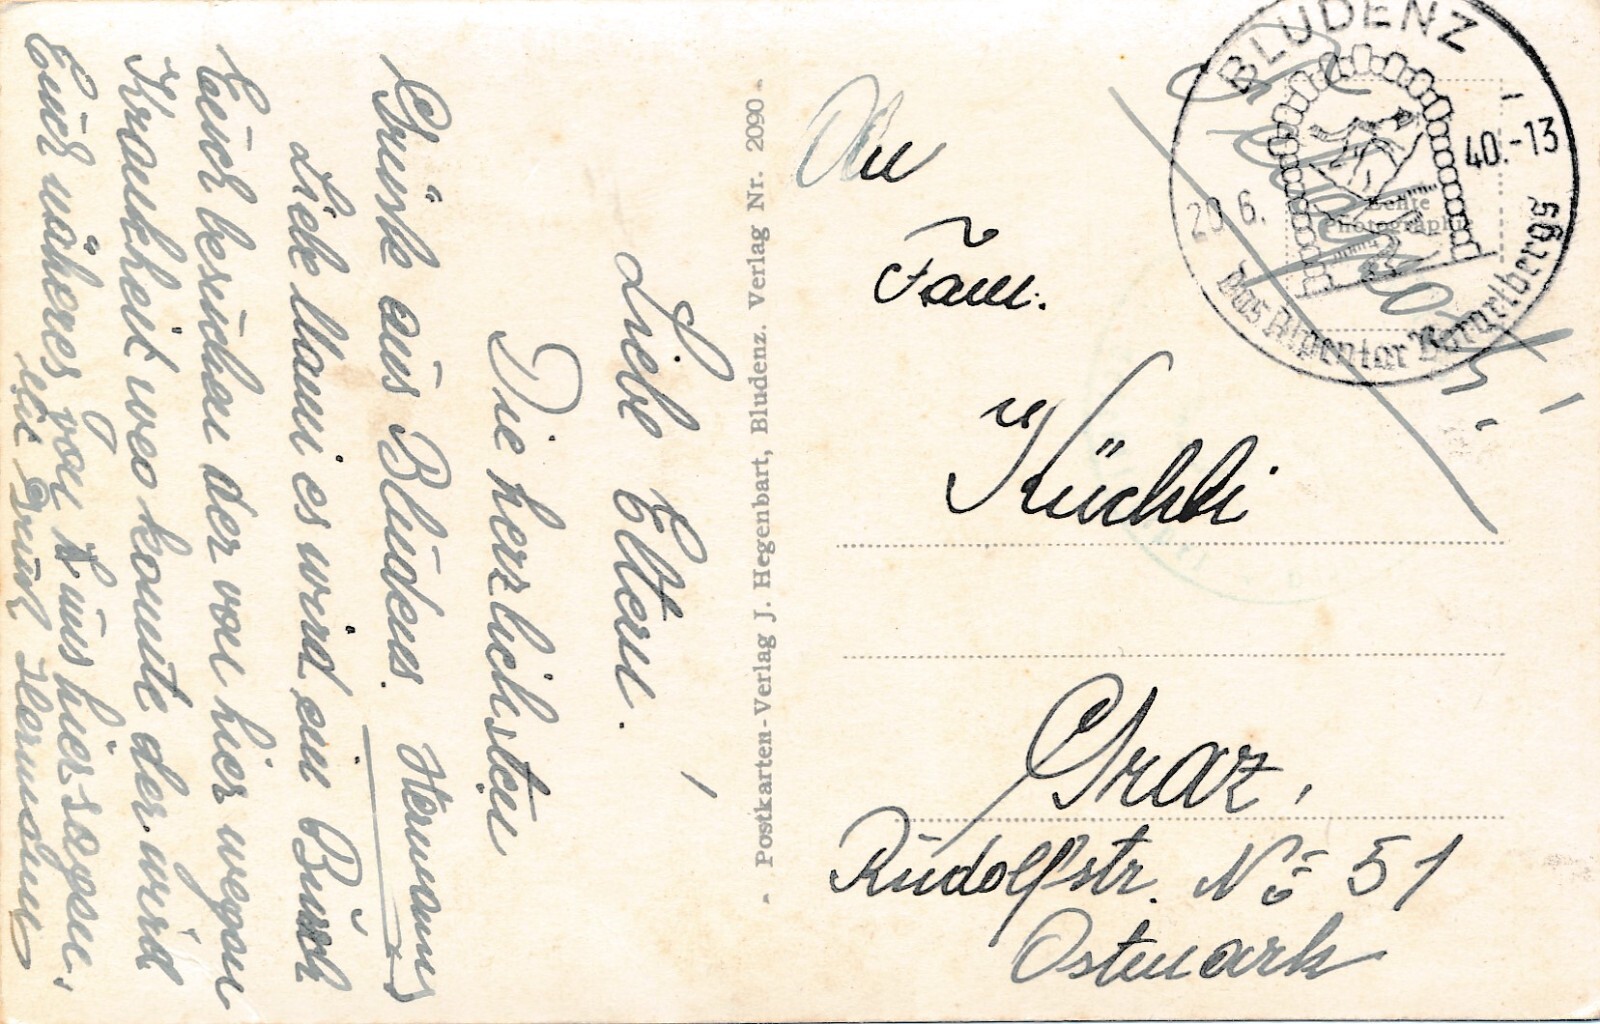 Liebe Eltern.
Die herzlichsten
Grüsse aus Bludens. Hermanns
Liebe Mami es wird ein Bursch
Euch besuchen der von hier wegen
Krankheit weg komte der wird
Euch näheres von uns hier sagen.
mit Gruß Hermann
Postkarten-Verlag J. Hegenbart, Bludenz. Verlag Nr. 2090
Feldpost
BLUDENZ
20 6. 40.-13
Das Alpentor Vorarlbergs
Echte
Photographie
An
Fam.
Küchli
Graz,
Rudolfstr. No 51
Ostmark